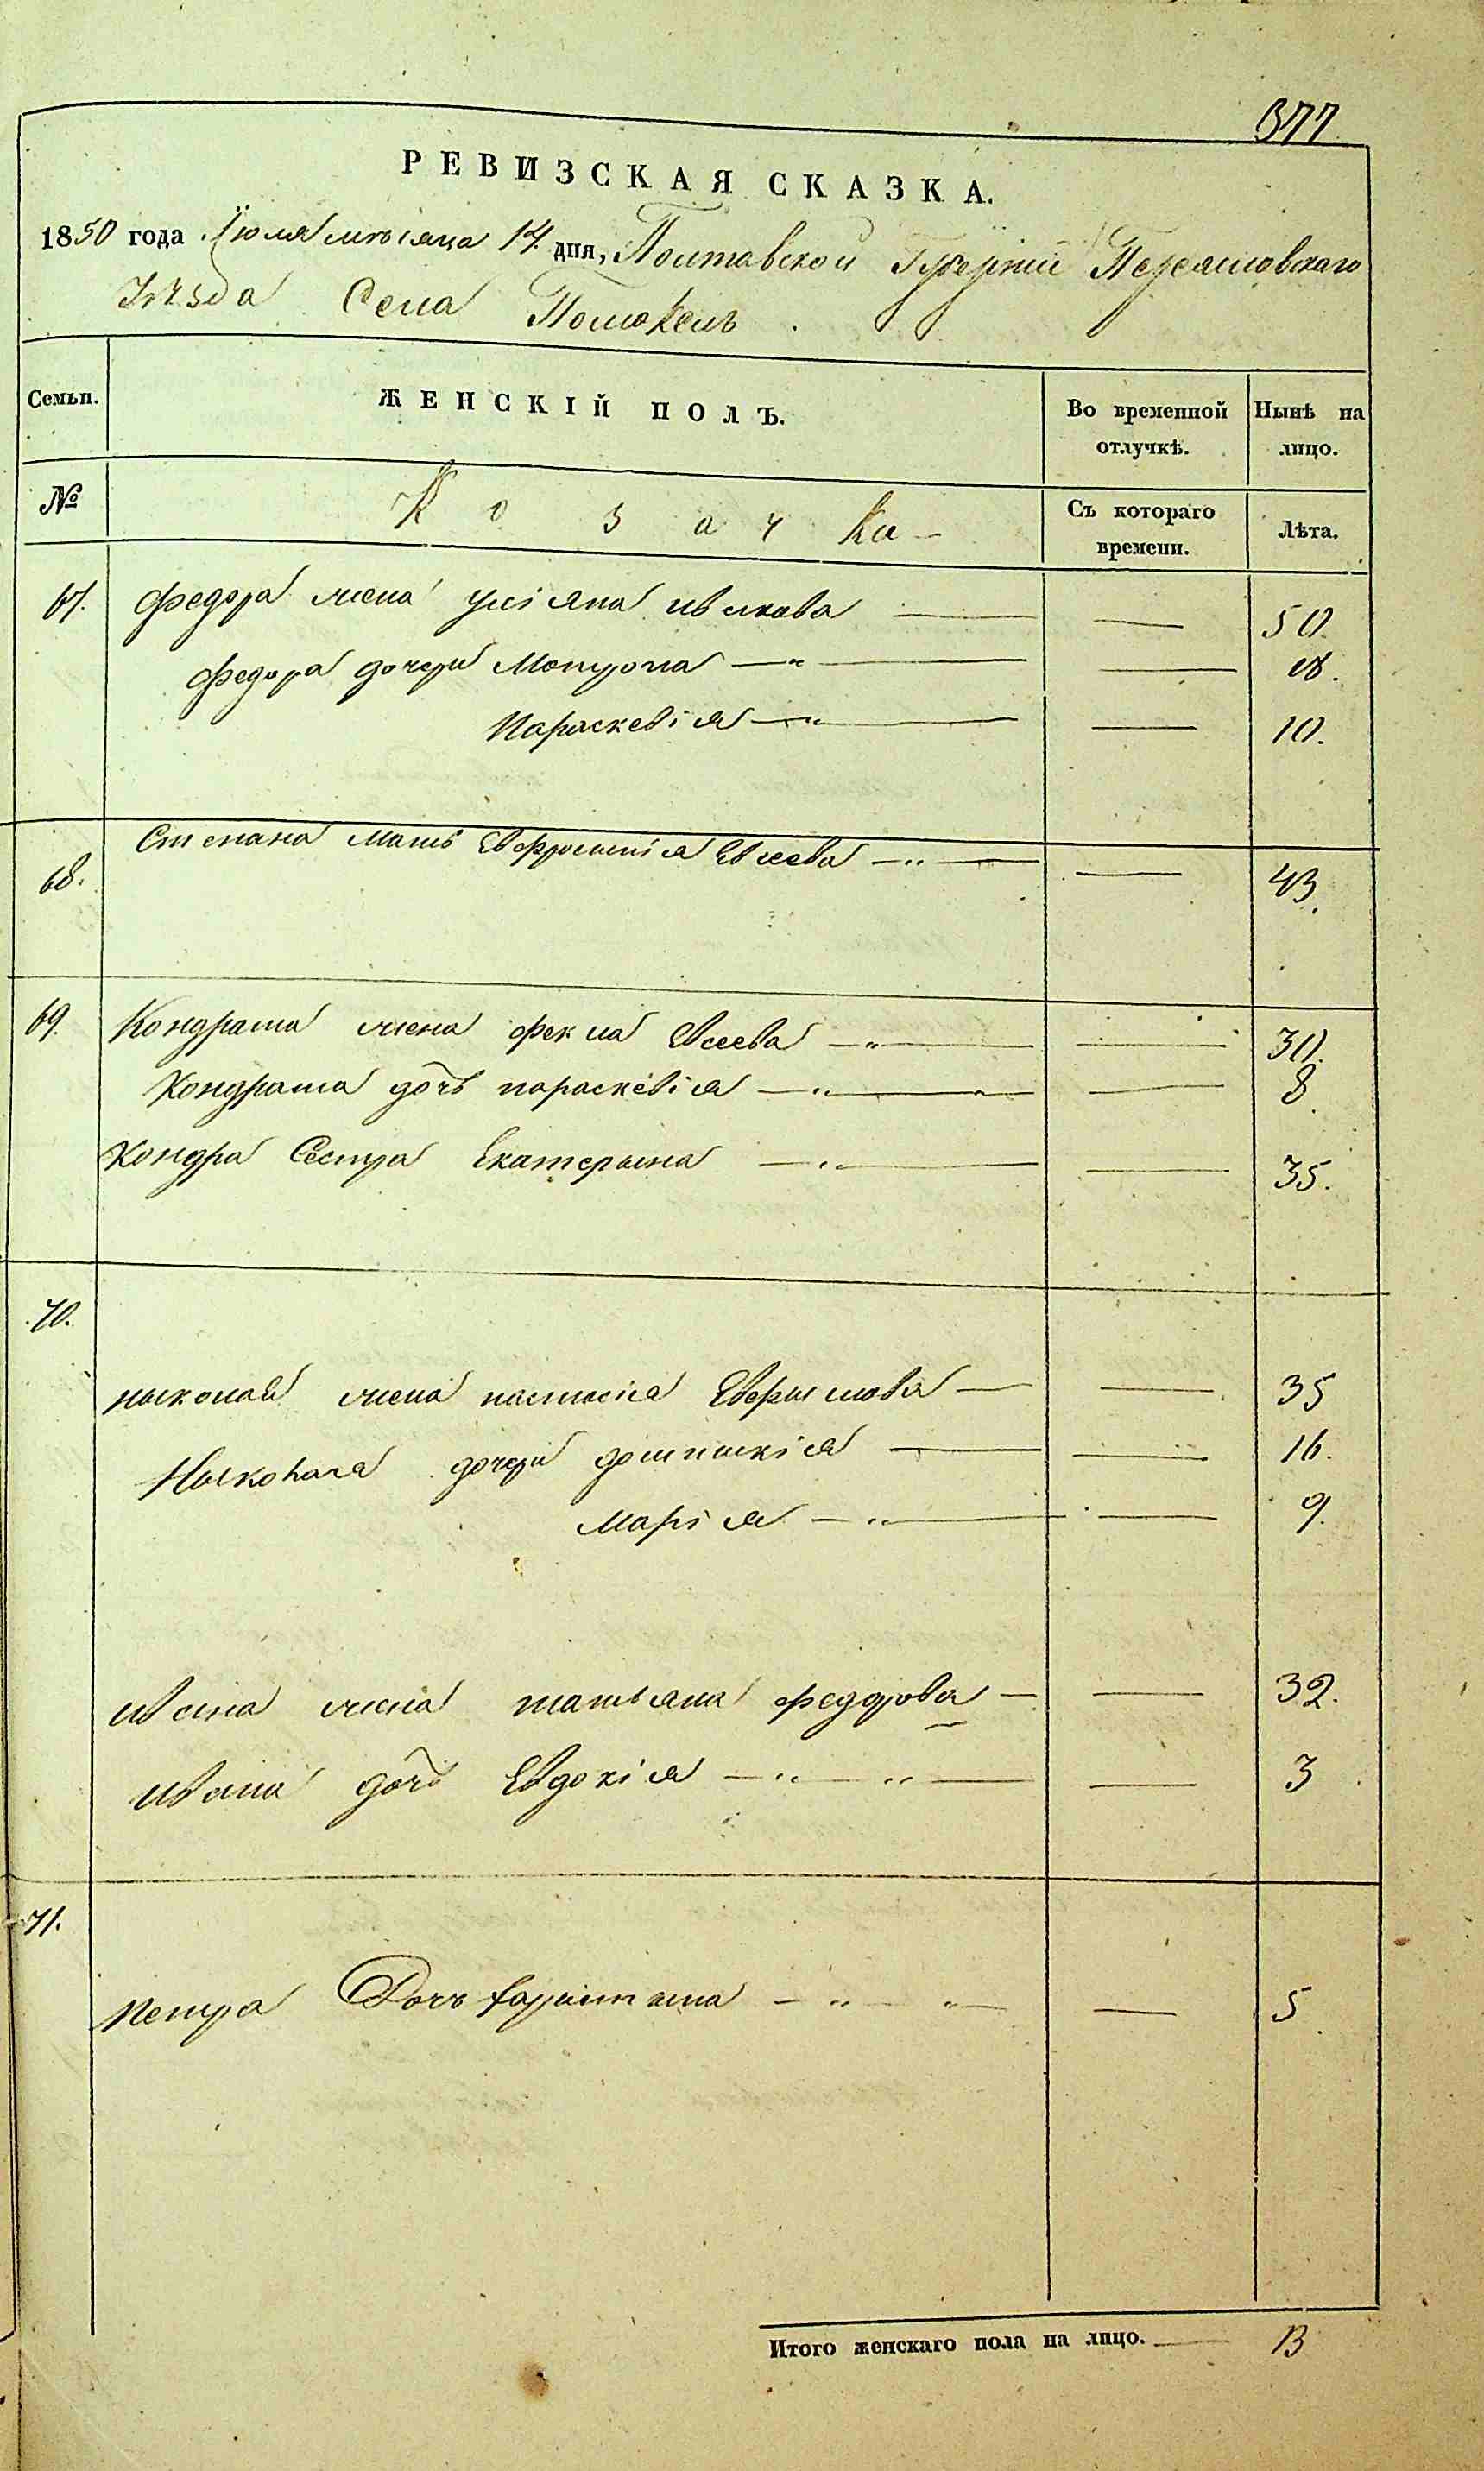 377
РЕВИЗСКАЯ СКАЗКА.
1850 года Іюля мѣсяца 14 дня, Полтавской Губерніи Переяславскаго
Уѣзда Села Помокель.
Семьи. ЖЕНСКІЙ ПОЛЪ. Во временной отлучкѣ. Нынѣ на лицо.
№ Козачки Съ котораго времени. Лѣта.
67. Федора жена Уліяна — 50.
Федора дочери Матрона — 18.
Параскевія — 10.
68. Степана мать Евфросинія Евсеева — 43.
69. Кондрата жена Фекла Евсеева — 30.
Кондрата дочь параскевія — 8.
Кондра Сестра Екатерына — 35.
70.
ныколая жена настасія — 35
Ныколая дочери домникія — 16.
Марія — 9.
Ивана жена татьяна федорова — 32.
Ивана дочь Евдокія — 3
71.
Петра Дочь — 5
Итого женскаго пола на лицо. — 13